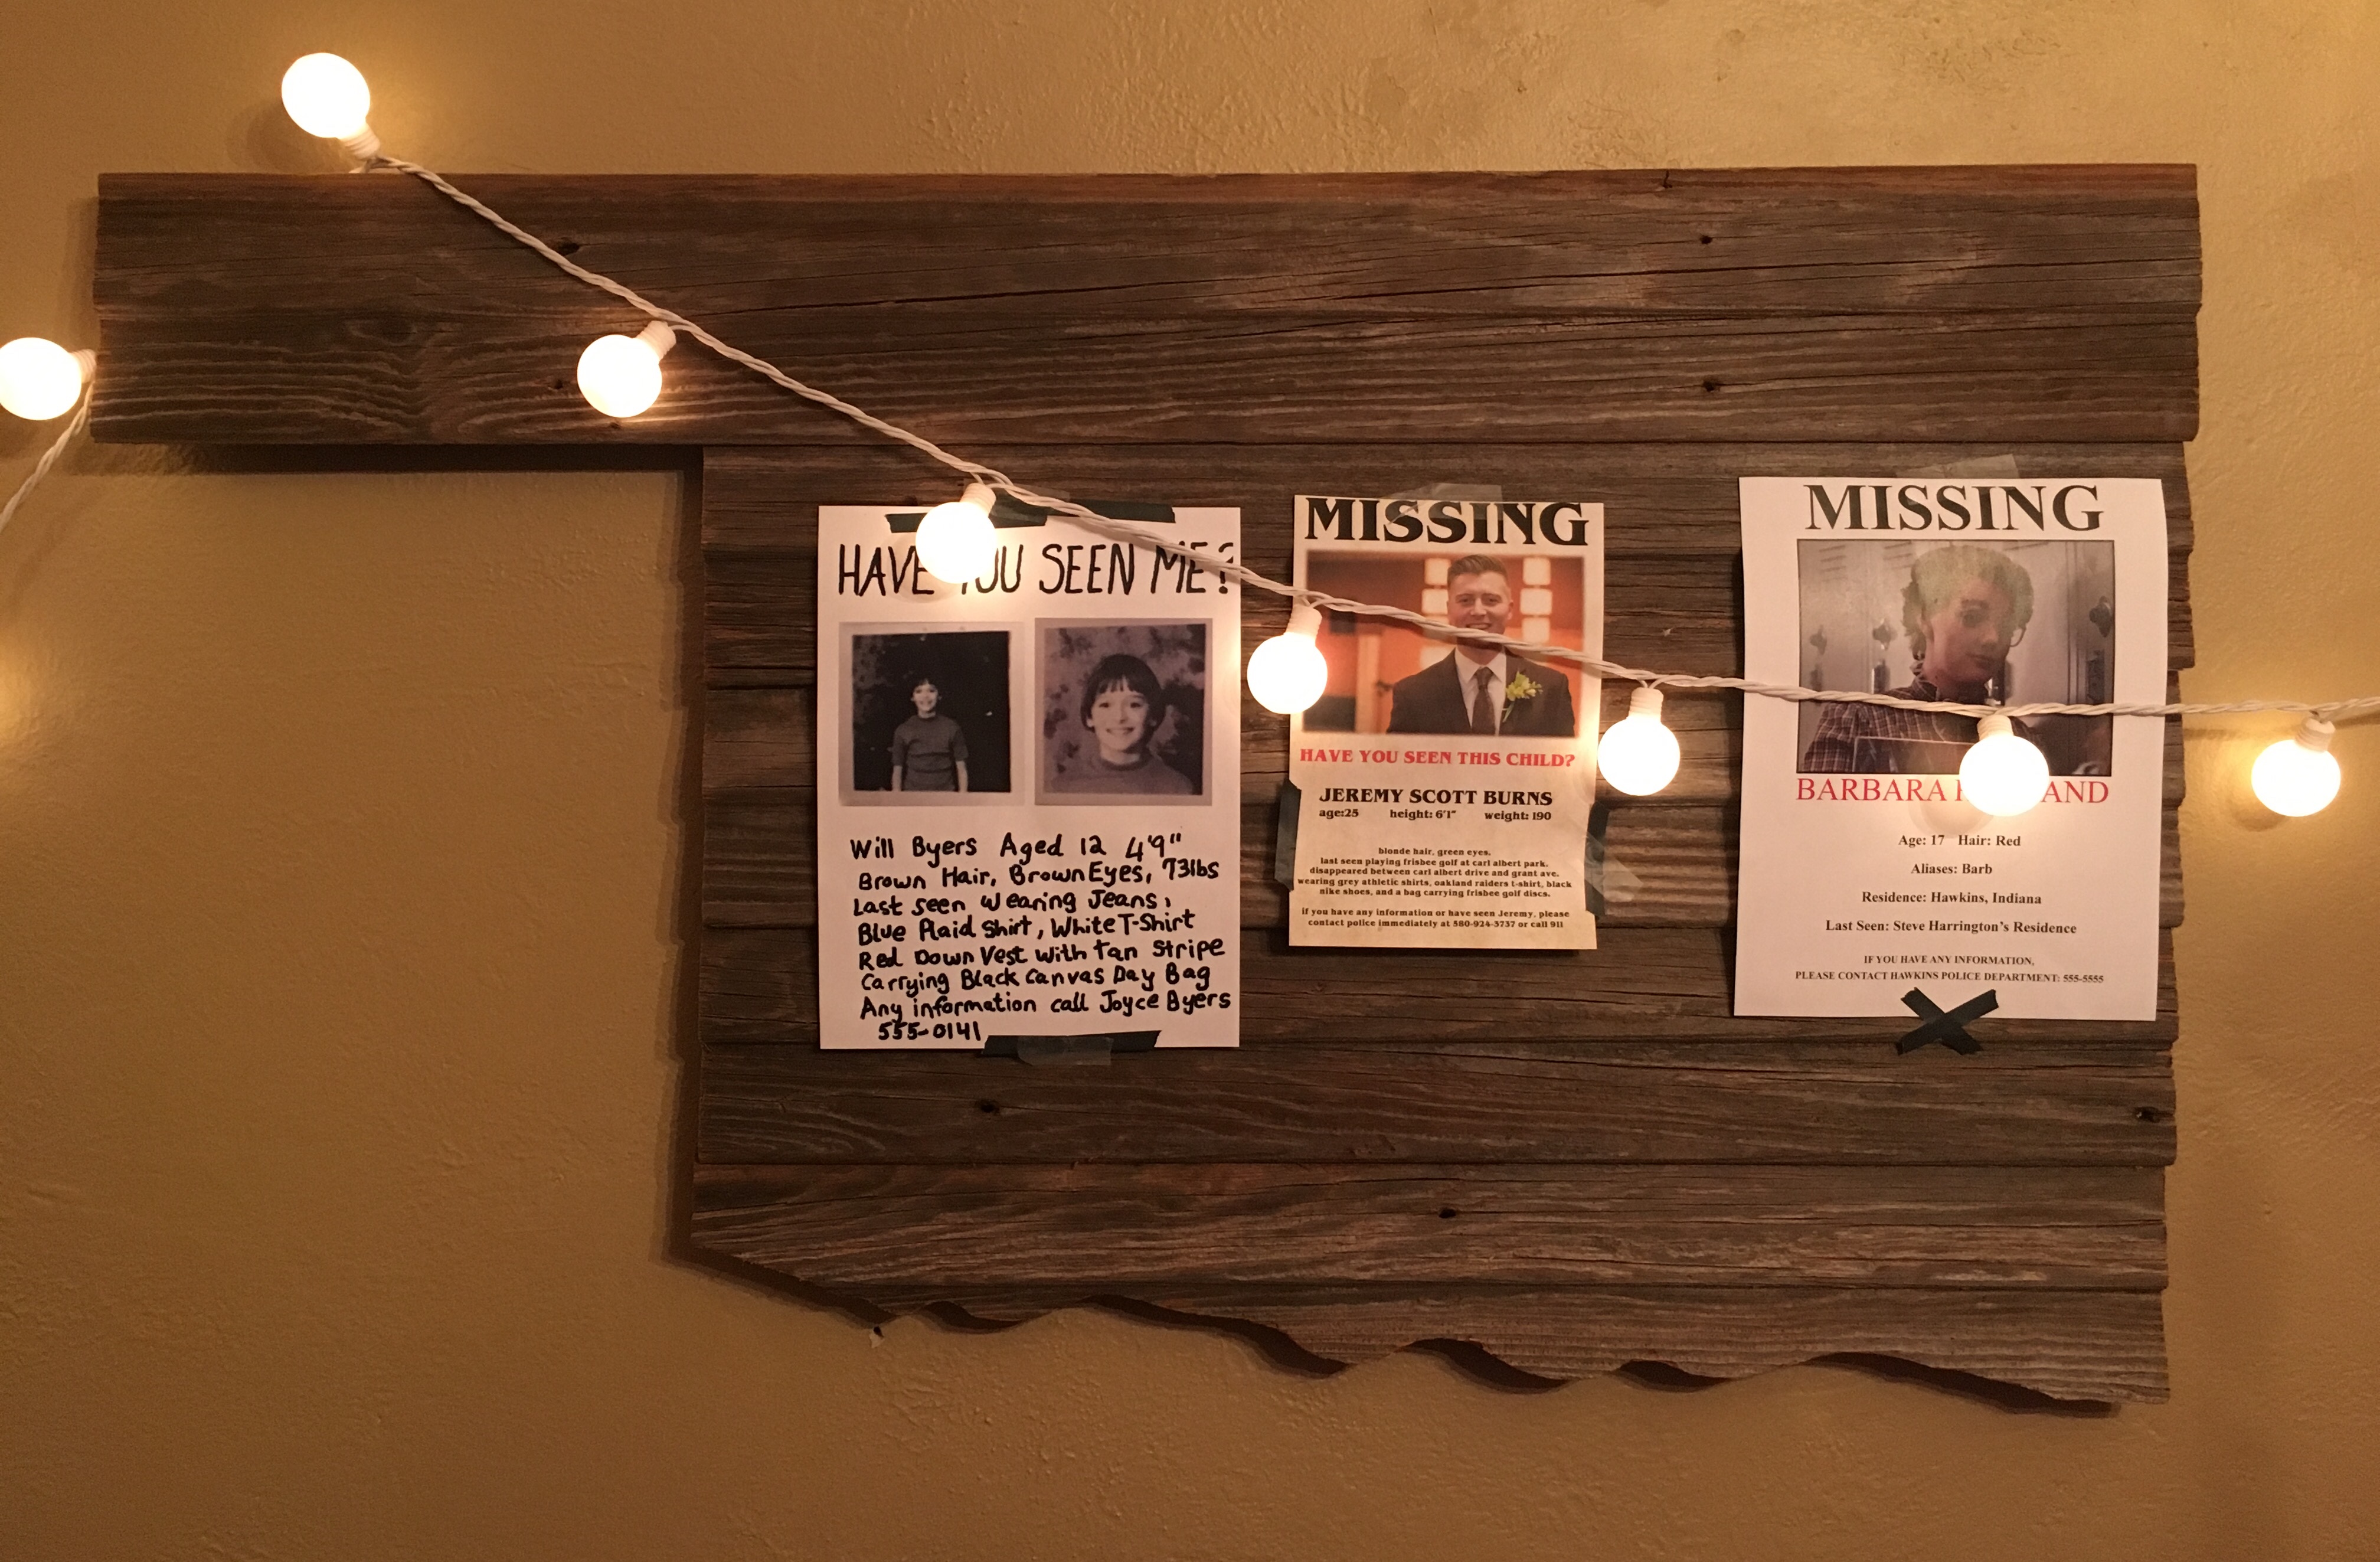 HAVE YOU SEEN ME?
Will Byers Aged 12 4'9"
Brown Hair, Brown Eyes, 73lbs
Last seen wearing Jeans,
Blue Plaid Shirt, White T-Shirt
Red Down Vest with tan stripe
Carrying Black Canvas Day Bag
Any information call Joyce Byers
555-0141
MISSING
HAVE YOU SEEN THIS CHILD?
JEREMY SCOTT BURNS
age:25 height: 6'1" weight: 190
blonde hair, green eyes.
last seen playing frisbee golf at carl albert park.
disappeared between carl albert drive and grant ave.
wearing grey athletic shirts, oakland raiders t-shirt, black
nike shoes, and a bag carrying frisbee golf discs.
if you have any information or have seen Jeremy, please
contact police immediately at 580-924-3737 or call 911
MISSING
BARBARA
Age: 17 Hair: Red
Aliases: Barb
Residence: Hawkins, Indiana
Last Seen: Steve Harrington's Residence
IF YOU HAVE ANY INFORMATION,
PLEASE CONTACT HAWKINS POLICE DEPARTMENT: 555-5555